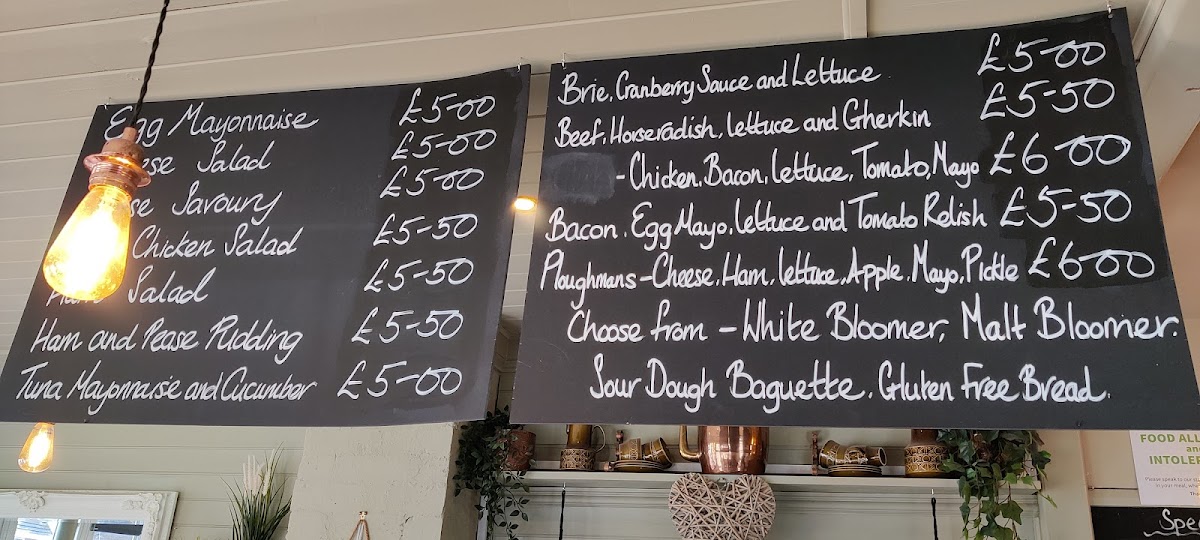 Egg Mayonnaise £5-00
Salad £5-00
Savoury £5-00
Chicken Salad £5-50
Salad £5-50
Ham and Pease Pudding £5-50
Tuna Mayonnaise and Cucumber £5-00
Brie, Cranberry Sauce and Lettuce £5-00
Beef, Horseradish, lettuce and Gherkin £5-50
- Chicken, Bacon, lettuce, Tomato, Mayo £6-00
Bacon, Egg Mayo, lettuce and Tomato Relish £5-50
Ploughmans - Cheese, Ham, lettuce, Apple, Mayo, Pickle £6-00
Choose from - White Bloomer, Malt Bloomer.
Sour Dough Baguette, Gluten Free Bread.
FOOD
INTOLER